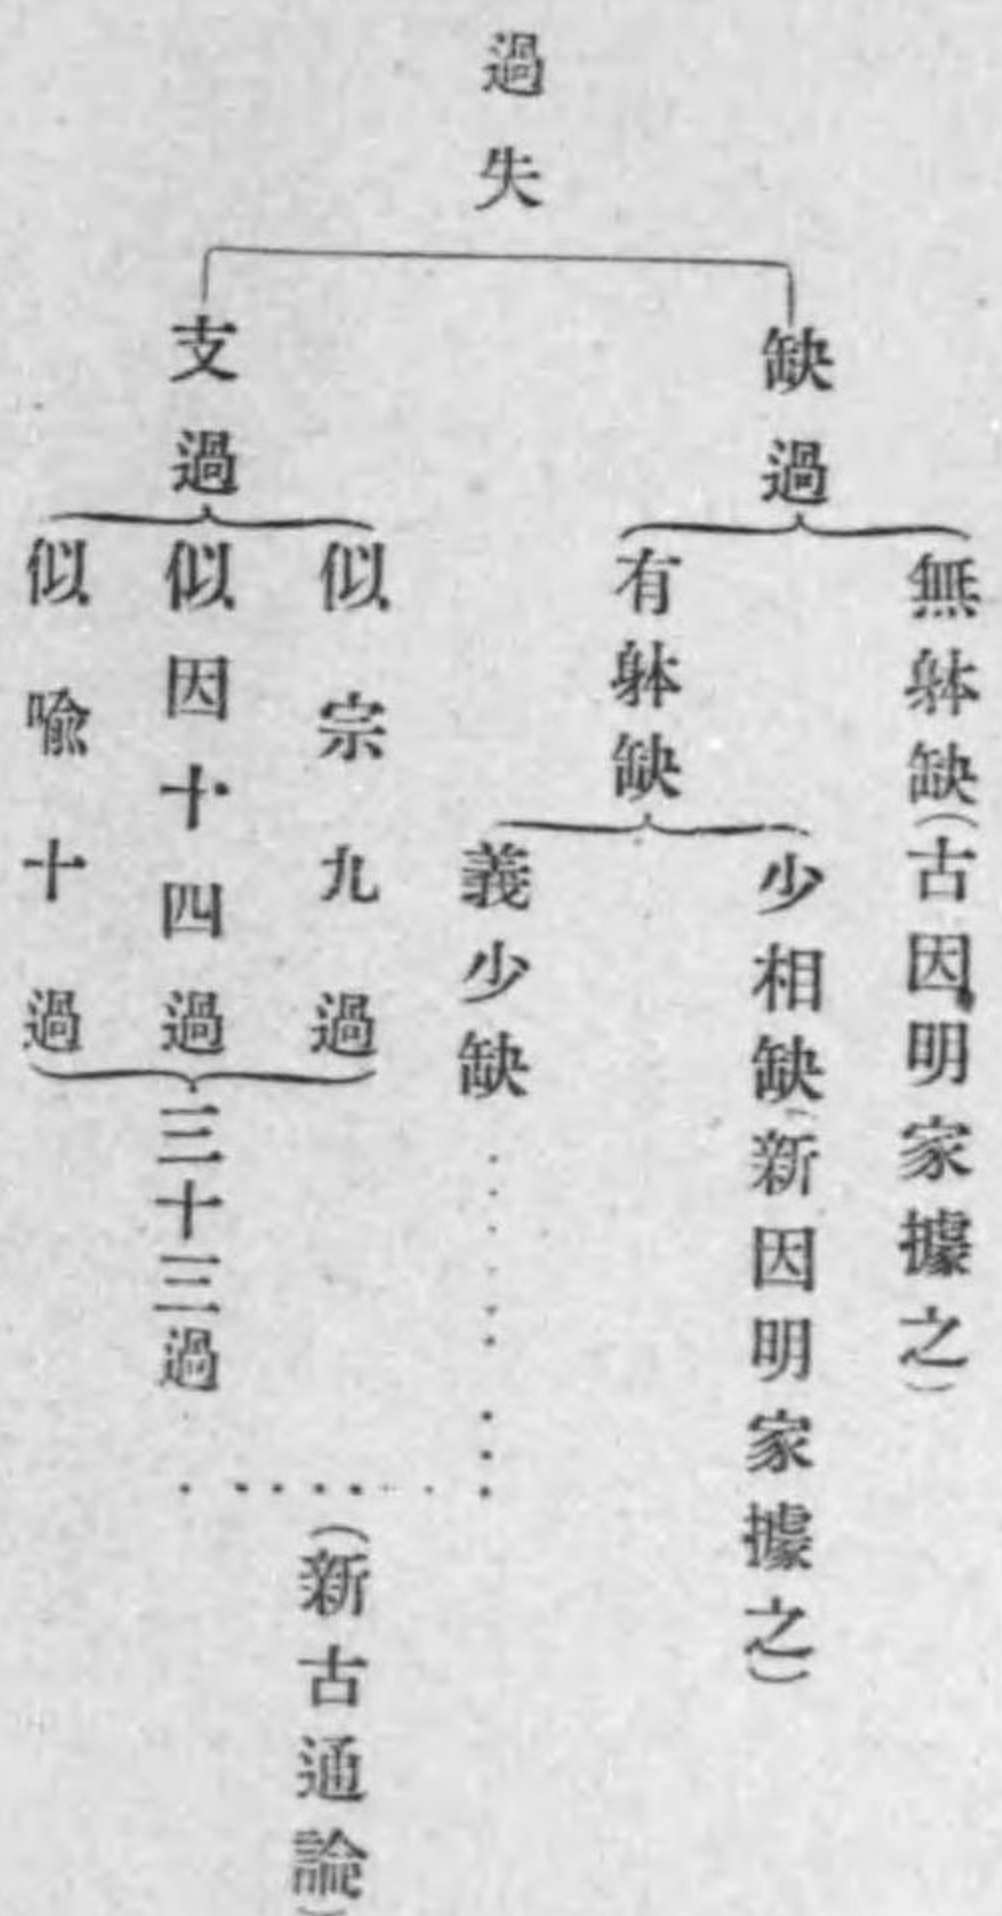 過失
缺過
無躰缺(古因明家據之)
有躰缺
少相缺(新因明家據之)
義少缺
支過
似宗九過
似因十四過
似喩十過
三十三過
(新古通論)